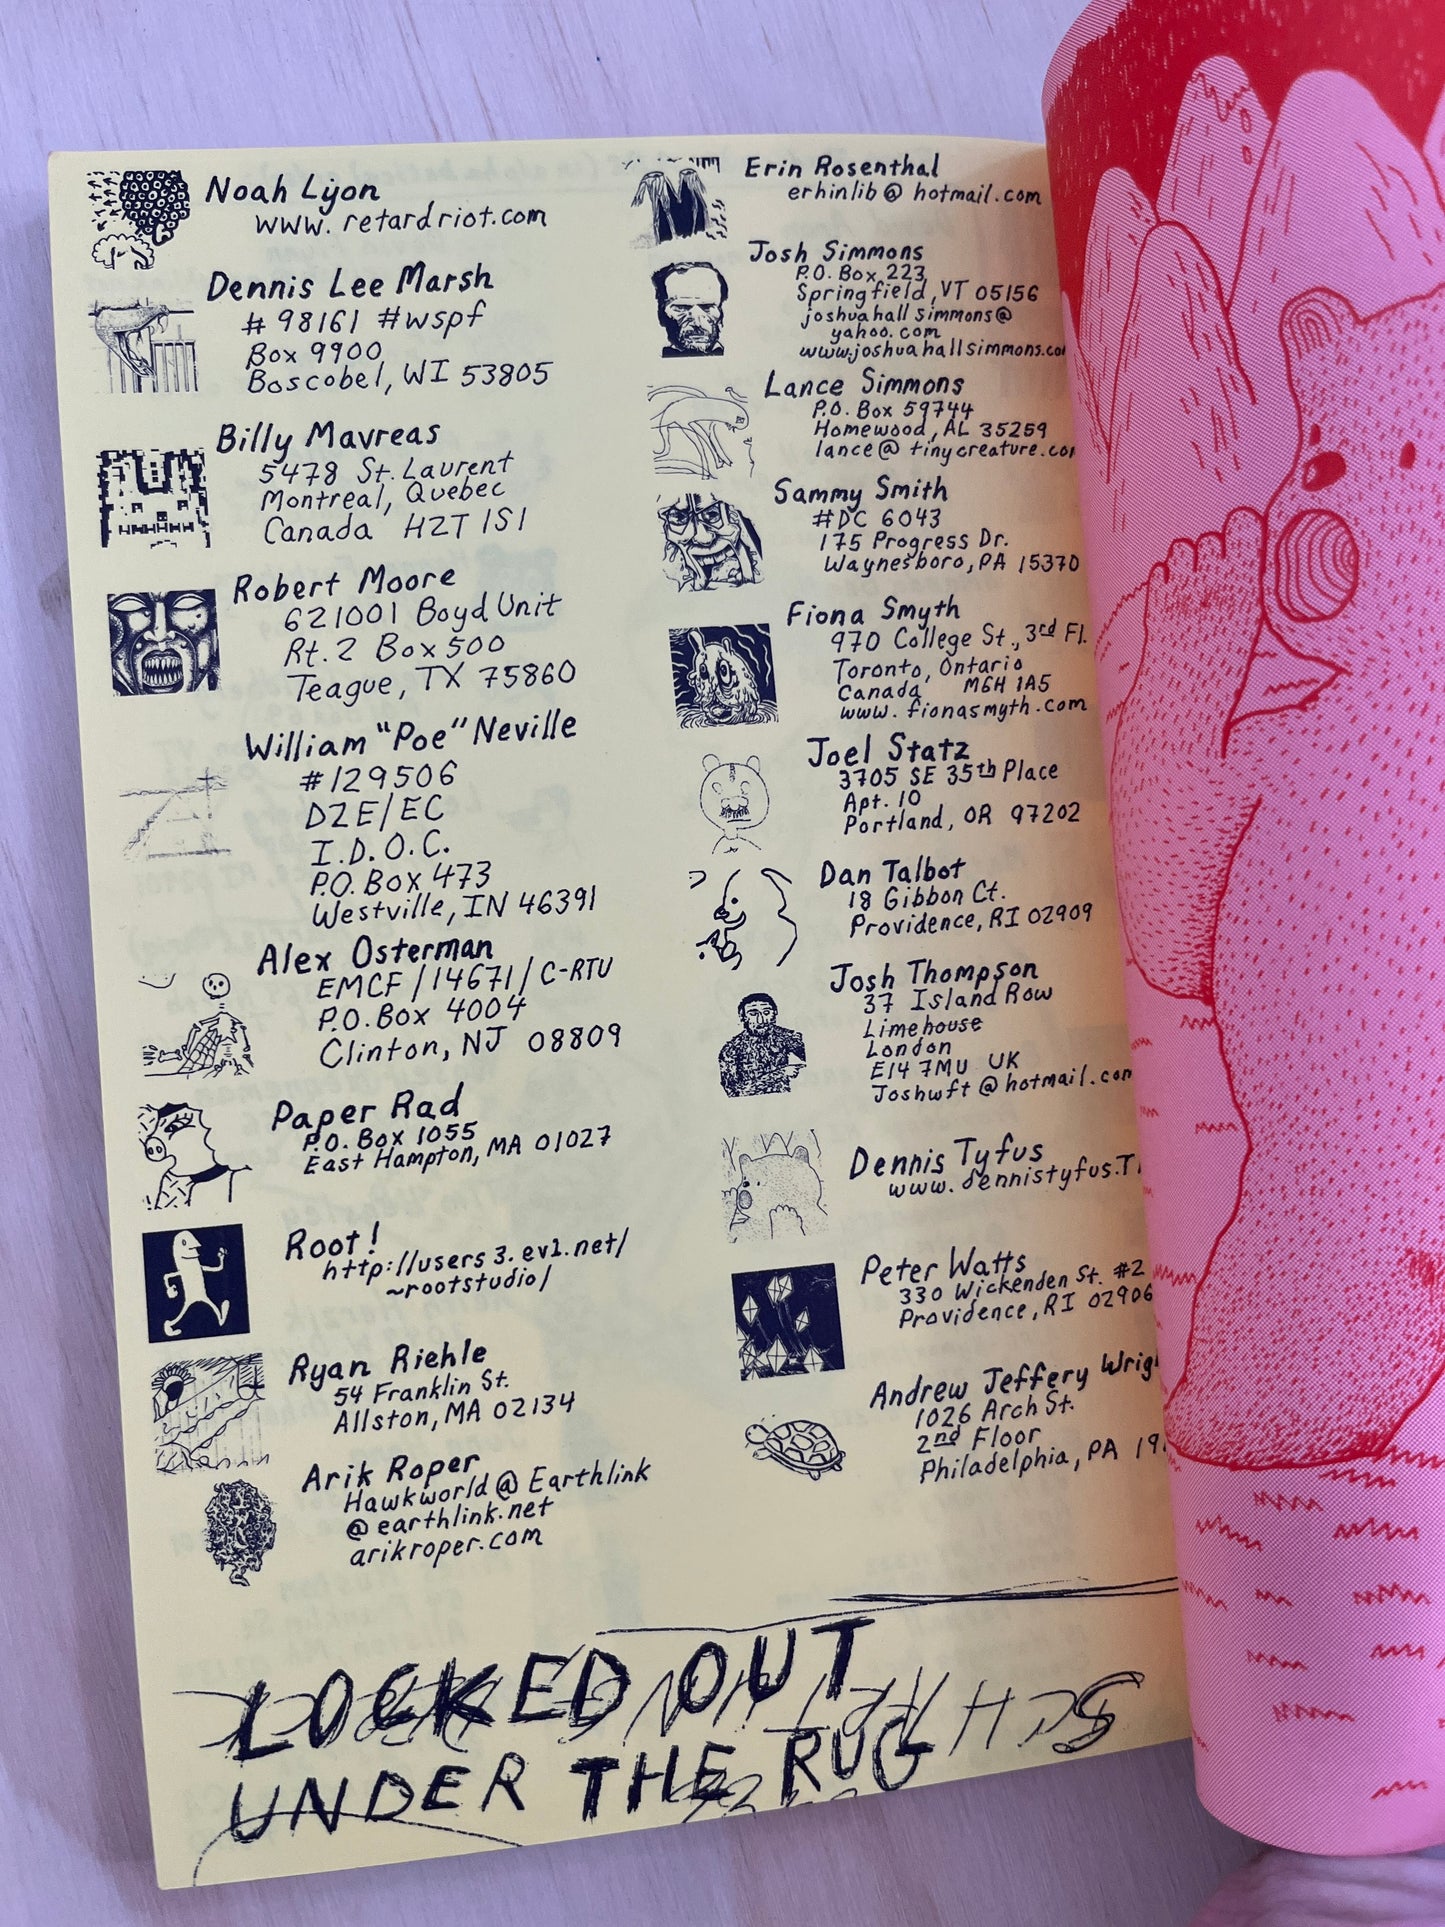 Noah Lyon
www.retardriot.com
Dennis Lee Marsh
#98161 #wspf
Box 9900
Boscobel, WI 53805
Billy Mavreas
5478 St. Laurent
Montreal, Quebec
Canada H2T 1S1
Robert Moore
621001 Boyd Unit
Rt. 2 Box 500
Teague, TX 75860
William "Poe" Neville
#129506
D2E/EC
I.D.O.C.
P.O. Box 473
Westville, IN 46391
Alex Osterman
EMCF/14671/C-RTU
P.O. Box 4004
Clinton, NJ 08809
Paper Rad
P.O. Box 1055
East Hampton, MA 01027
Root!
http://users3.ev1.net/
~rootstudio/
Ryan Riehle
54 Franklin St.
Allston, MA 02134
Arik Roper
Hawkworld@Earthlink
@earthlink.net
arikroper.com
Erin Rosenthal
erhinlib@hotmail.com
Josh Simmons
P.O. Box 223
Springfield, VT 05156
joshuahallsimmons@
yahoo.com
www.joshuahallsimmons.co
Lance Simmons
P.O. Box 59744
Homewood, AL 35259
lance@tinycreature.co
Sammy Smith
#DC 6043
175 Progress Dr.
Waynesboro, PA 15370
Fiona Smyth
970 College St., 3rd Fl.
Toronto, Ontario
Canada M6H 1A5
www.fionasmyth.com
Joel Statz
3705 SE 35th Place
Apt. 10
Portland, OR 97202
Dan Talbot
18 Gibbon Ct.
Providence, RI 02909
Josh Thompson
37 Island Row
Limehouse
London
E14 7MU UK
Joshwft@hotmail.com
Dennis Tyfus
www.dennistyfus.T
Peter Watts
330 Wickenden St. #2
Providence, RI 02906
Andrew Jeffery Wrig
1026 Arch St.
2nd Floor
Philadelphia, PA 19
LOCKED OUT
UNDER THE RUG